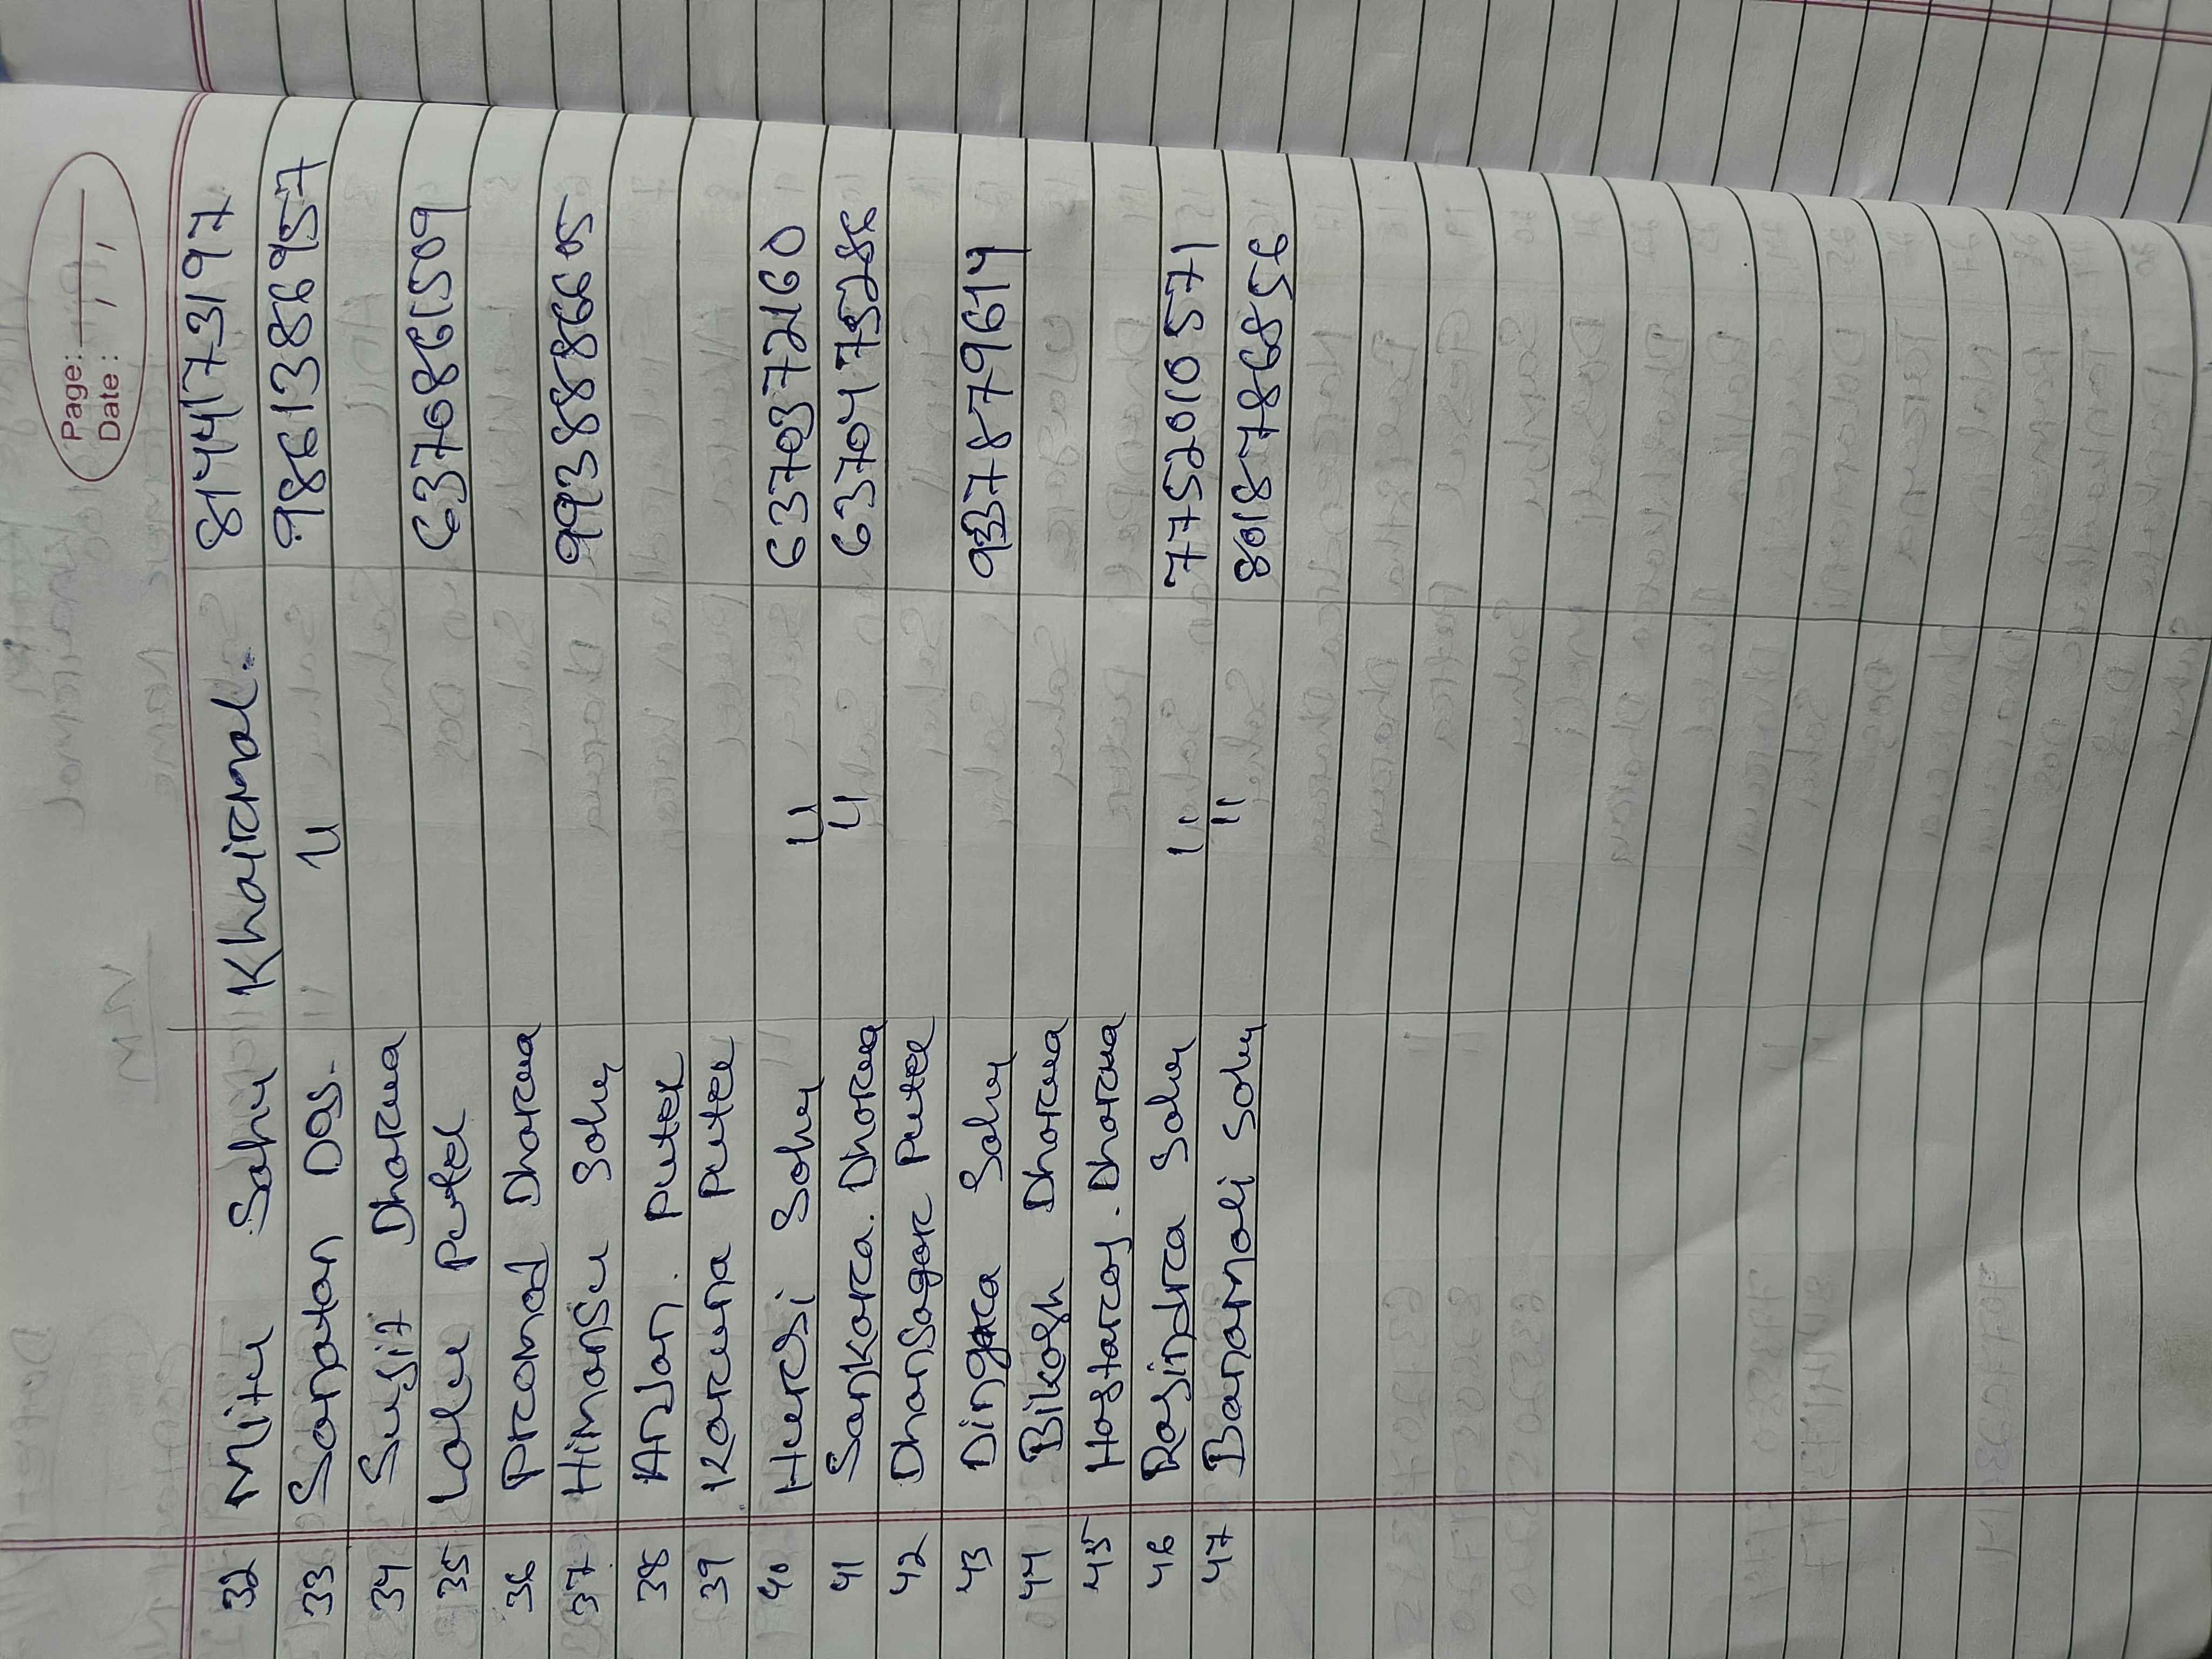 Page:
Date:
32 Mitu Sahu Khairmal. 8144173197
33 Sanatan Das. " 9861386957
34 Susit Dharua
35 Lalu Putel 6370861509
36 Promod Dharua
37 Himansu Sahu 9938886605
38 Anjan. Putel
39 Karuna Putel
40 Hursi Sahu " 6370372160
41 Sankara. Dharua " 6370475286
42 Dhansagar Putel
43 Dingra Sahu 9337879614
44 Bikash Dharua
45 Hastaray. Dharua
46 Rasindra Sahu " 7752010571
47 Banamali Sahu " 8018786856